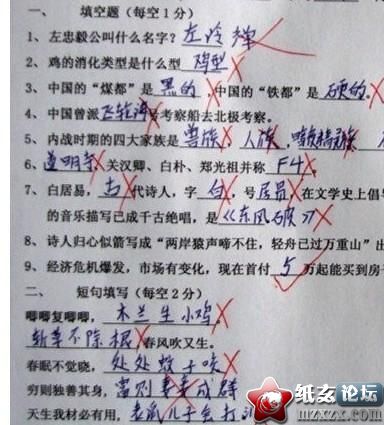 一、 填空题（每空1分）
1、左忠毅公叫什么名字？左冷禅
2、鸡的消化类型是什么型 鸡型
3、中国的“煤都”是 黑的，中国的“铁都”是 硬的。
4、中国曾派 飞轮海 号考察船去北极考察。
5、内战时期的四大家族是 兽族，人族，暗夜精灵族，
6、道明寺，关汉卿、白朴、郑光祖并称 F4。
7、白居易，古代诗人，字 白，号 居易，在文学史上倡
的音乐描写已成千古绝唱，是《东风破》
8、诗人归心似箭写成“两岸猿声啼不住，轻舟已过万重山”出
9、经济危机爆发，市场有变化，现在首付 5 万起能买到房子
二、 短句填写（每空2分）
唧唧复唧唧，木兰生小鸡。
斩草不除根，春风吹又生。
春眠不觉晓，处处蚊子咬。
穷则独善其身，富则妻妾成群
天生我材必有用，老鼠儿子会打
纸友论坛
mzxzx.com